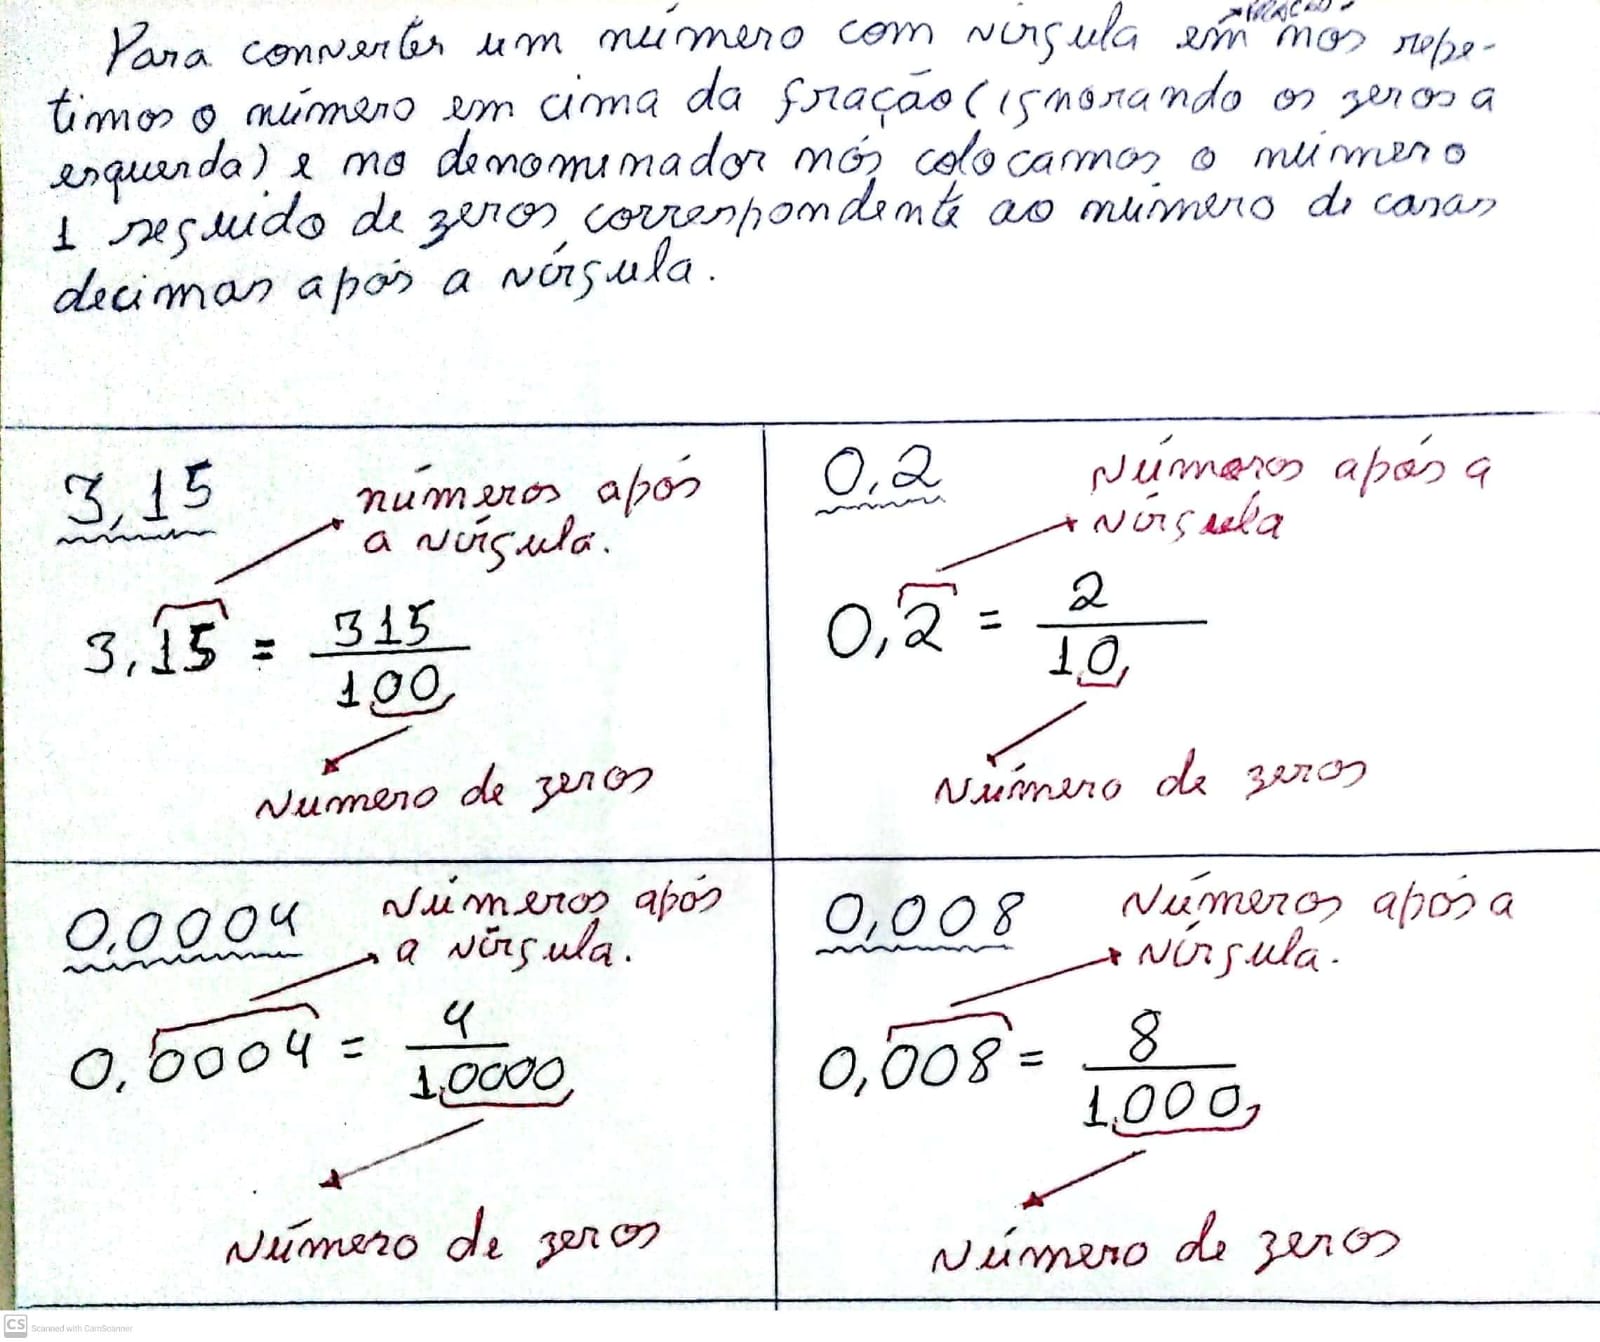 Para converter um número com vírgula em fração nós repe-
timos o número em cima da fração (ignorando os zeros a
esquerda) e no denominador nós colocamos o número
1 seguido de zeros correspondente ao número de casas
decimas após a vírgula.
3,15
números após
a vírgula.
3,15 = 315/100
Numero de zeros
0,2
Números após a
vírgula
0,2 = 2/10
Número de zeros
0,0004
Números após
a vírgula.
0,0004 = 4/10000
Número de zeros
0,008
Números após a
vírgula.
0,008 = 8/1000
Número de zeros
CS Scanned with CamScanner